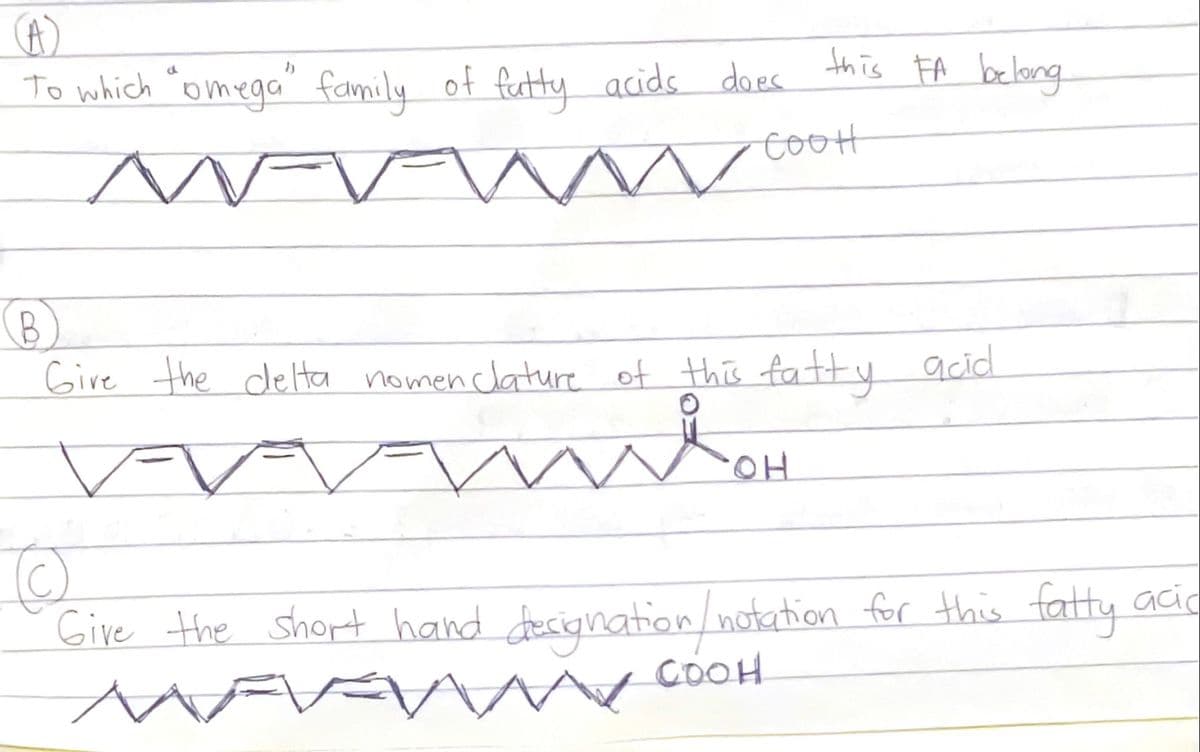 (A)
To which "omega" family of fatty acids does this FA belong
COOH
(B)
Give the delta nomenclature of this fatty acid
O
OH
(C)
Give the short hand designation/notation for this fatty acid
COOH